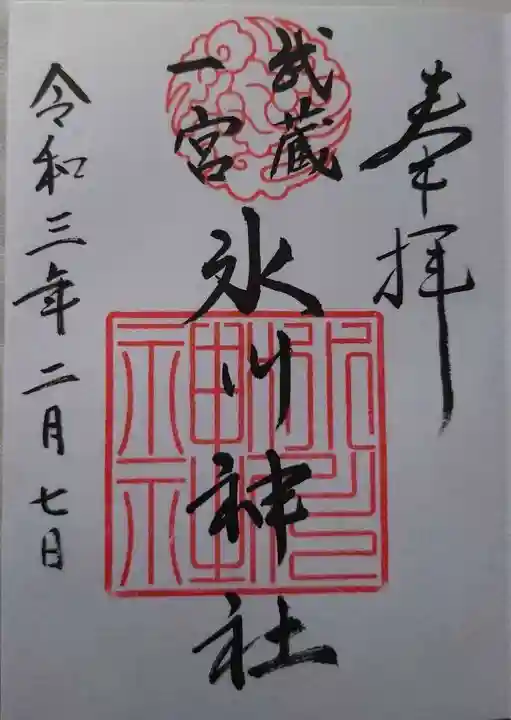 奉拝
武蔵
一宮
氷川神社
令和三年二月七日
氷川神社